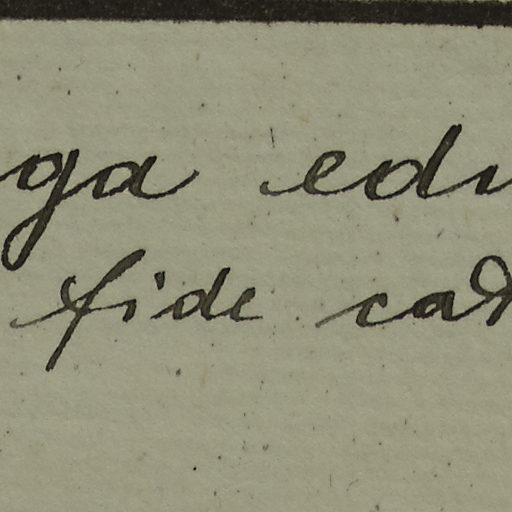 ga edu
fide cad